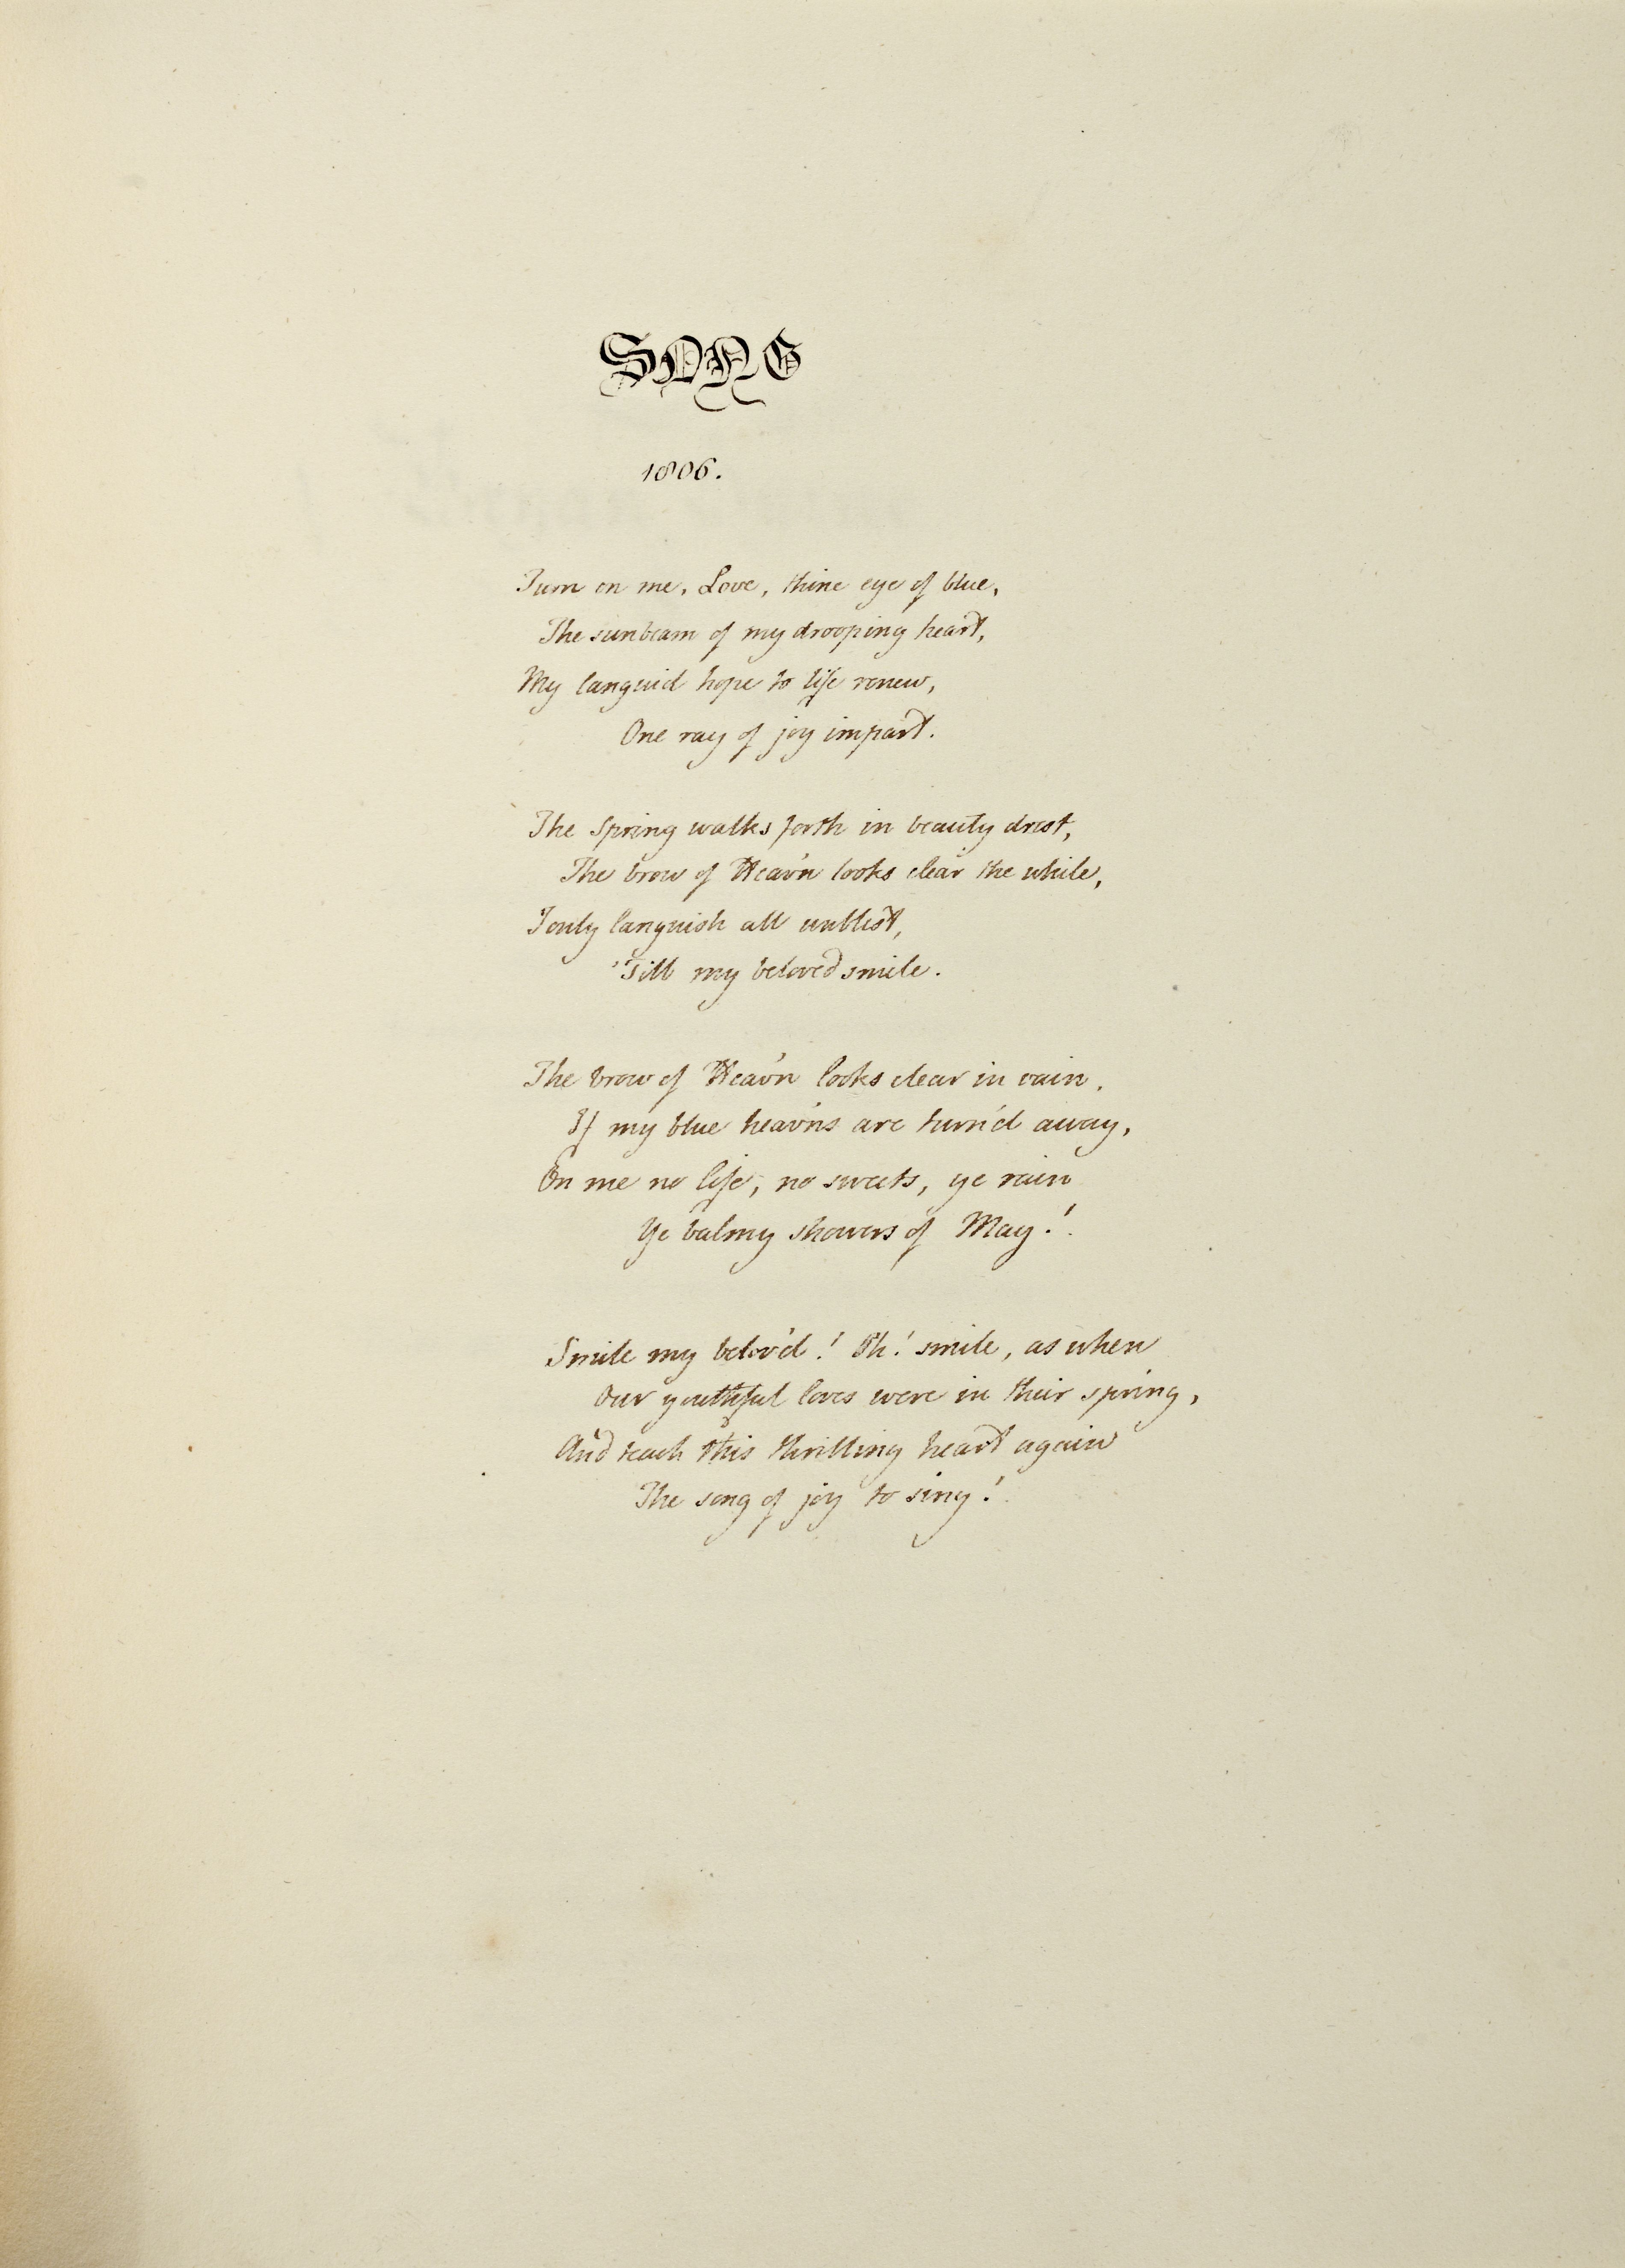 SONG
1806.
Turn on me, Love, thine eye of blue,
The sunbeam of my drooping heart,
My languid hope to life renew,
One ray of joy impart.
The Spring walks forth in beauty drest,
The brow of Heav'n looks clear the while,
I only languish all unblest,
'Till my beloved smile.
The brow of Heav'n looks clear in vain,
If my blue heav'ns are turn'd away,
On me no life, no sweets, ye rain
Ye balmy showers of May!
Smile my belov'd! Oh! smile, as when
Our youthful loves were in their spring,
And teach this thrilling heart again
The song of joy to sing!